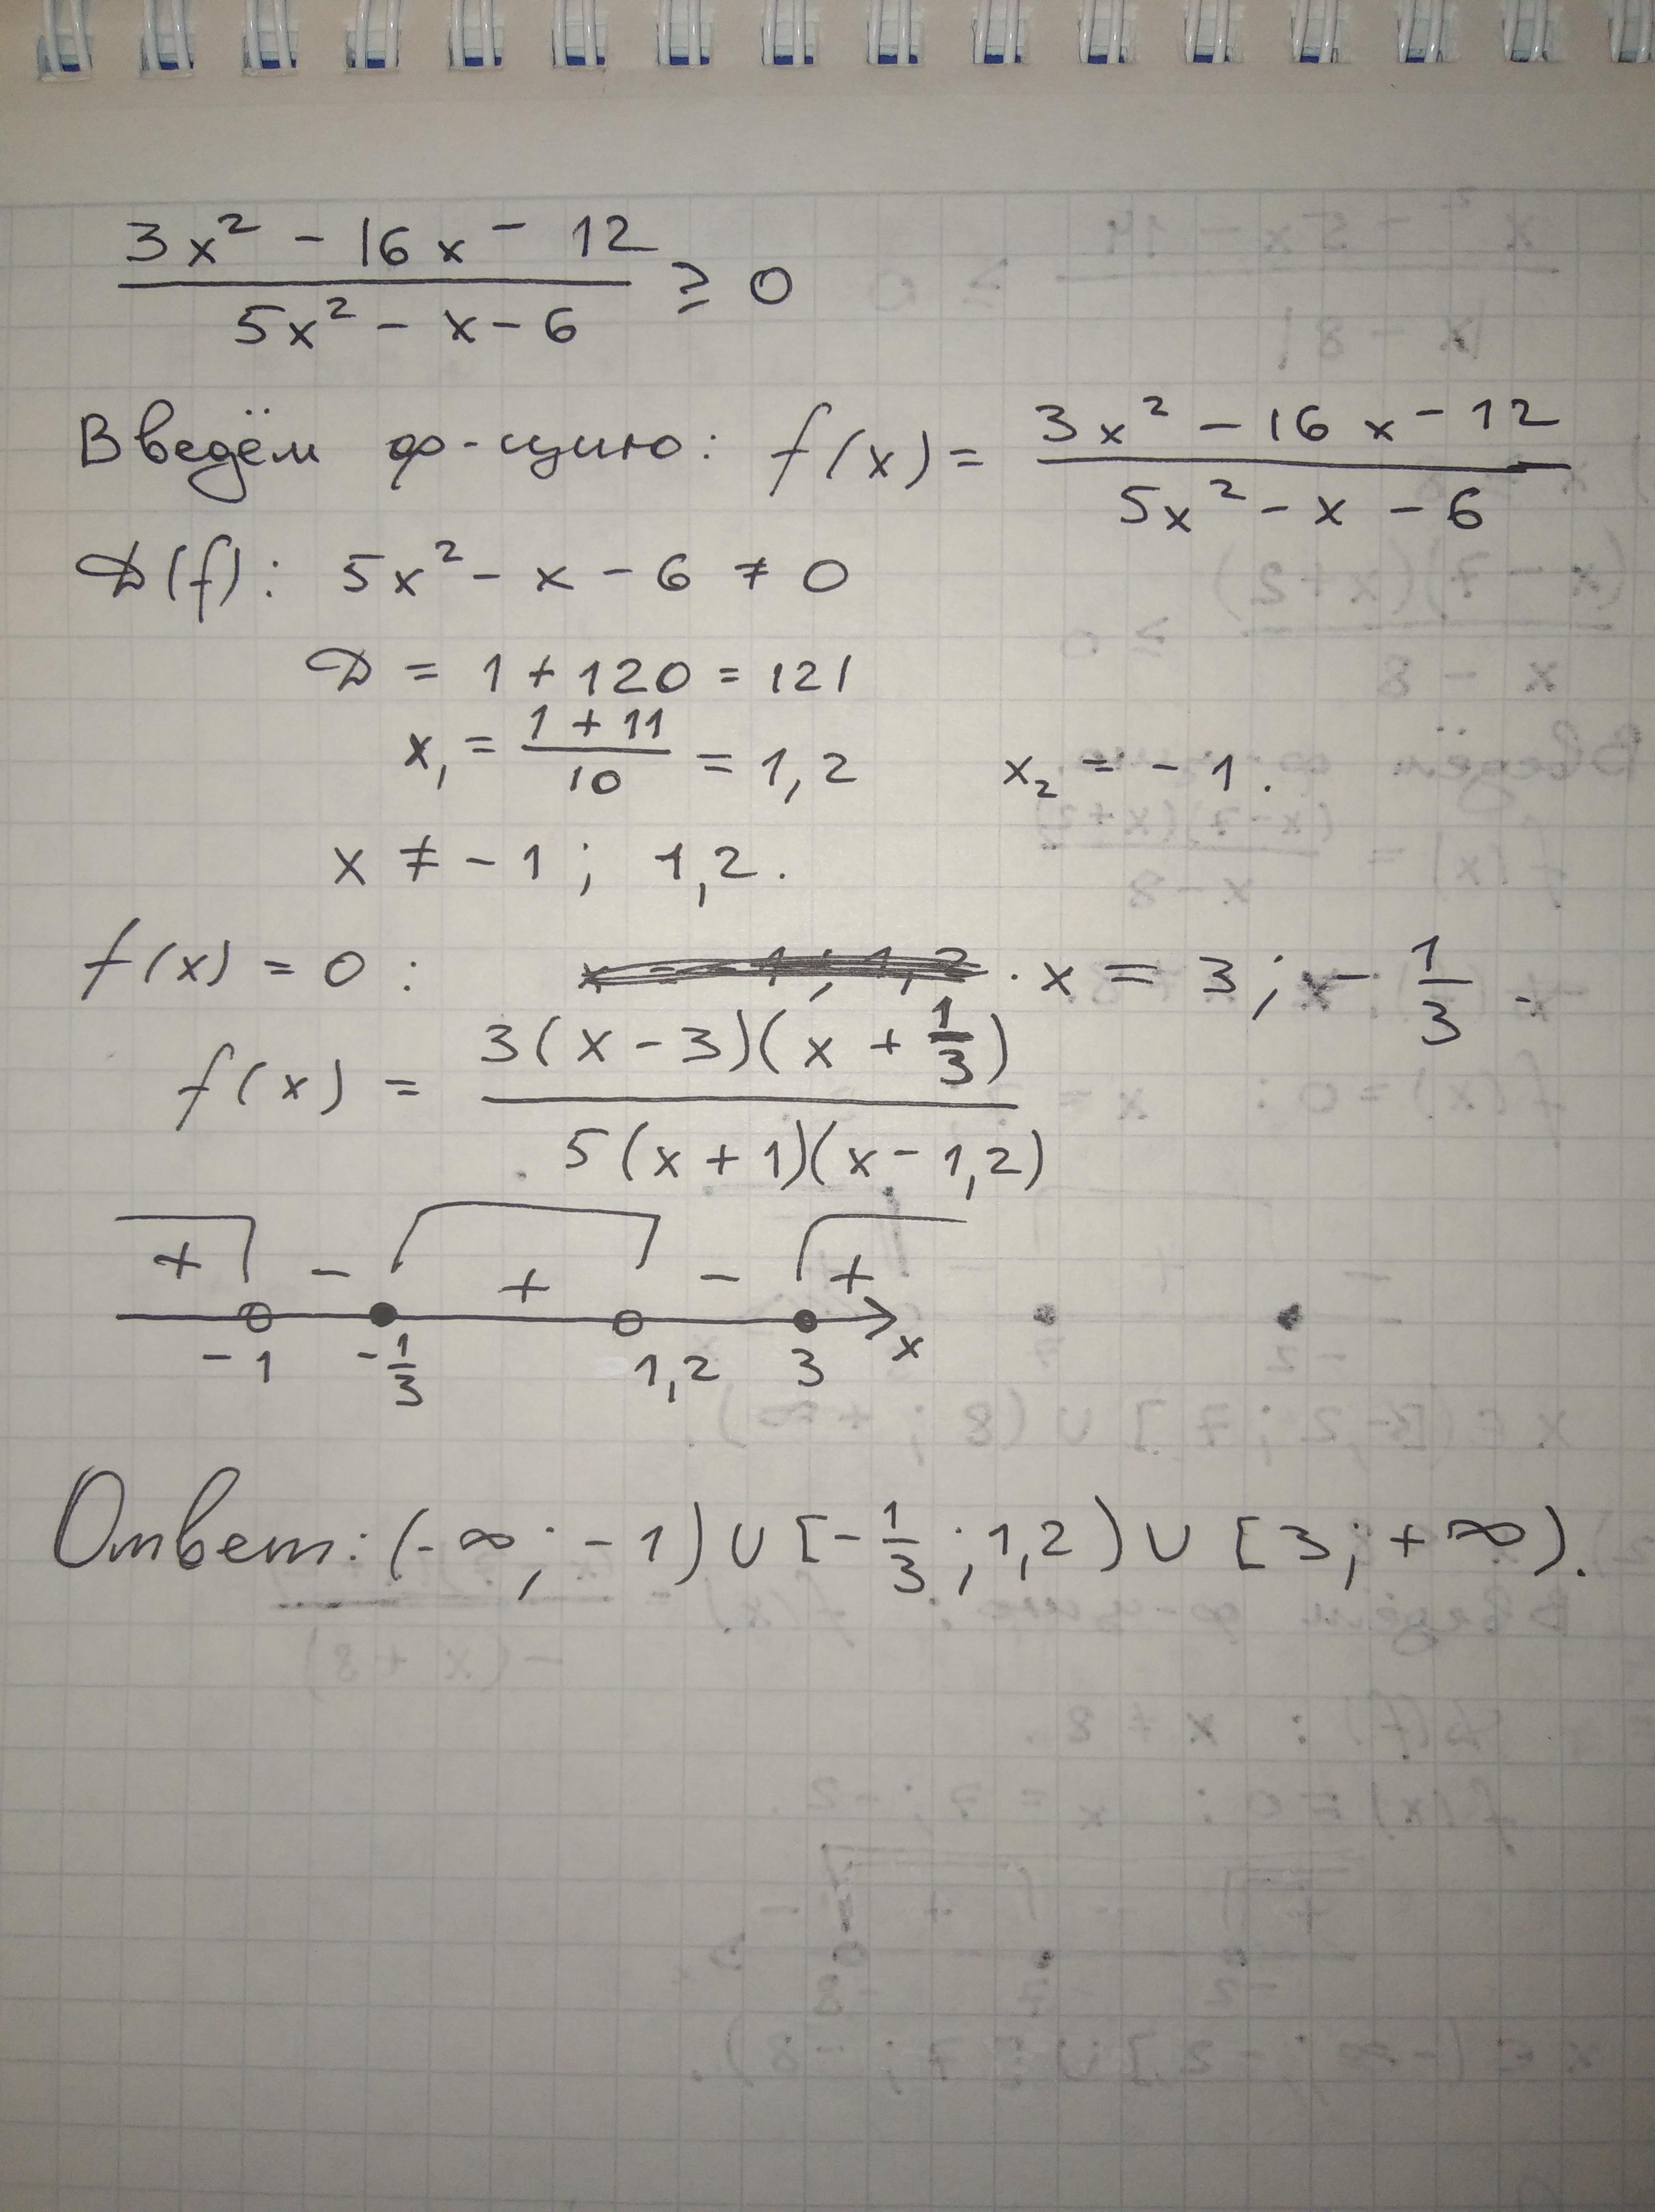 3x² - 16x - 12
5x² - x - 6 ≥ 0
Введём ф-цию: f(x) = (3x² - 16x - 12)/(5x² - x - 6)
D(f): 5x² - x - 6 ≠ 0
D = 1 + 120 = 121
x₁ = (1 + 11)/10 = 1,2 x₂ = - 1.
x ≠ - 1 ; 1,2.
f(x) = 0 : x = 3 ; - 1/3.
f(x) = 3(x - 3)(x + 1/3)/5(x + 1)(x - 1,2)
+ - + - +
- 1 - 1/3 1,2 3 x
Ответ: (-∞; - 1) ∪ [- 1/3 ; 1,2) ∪ [3; + ∞).